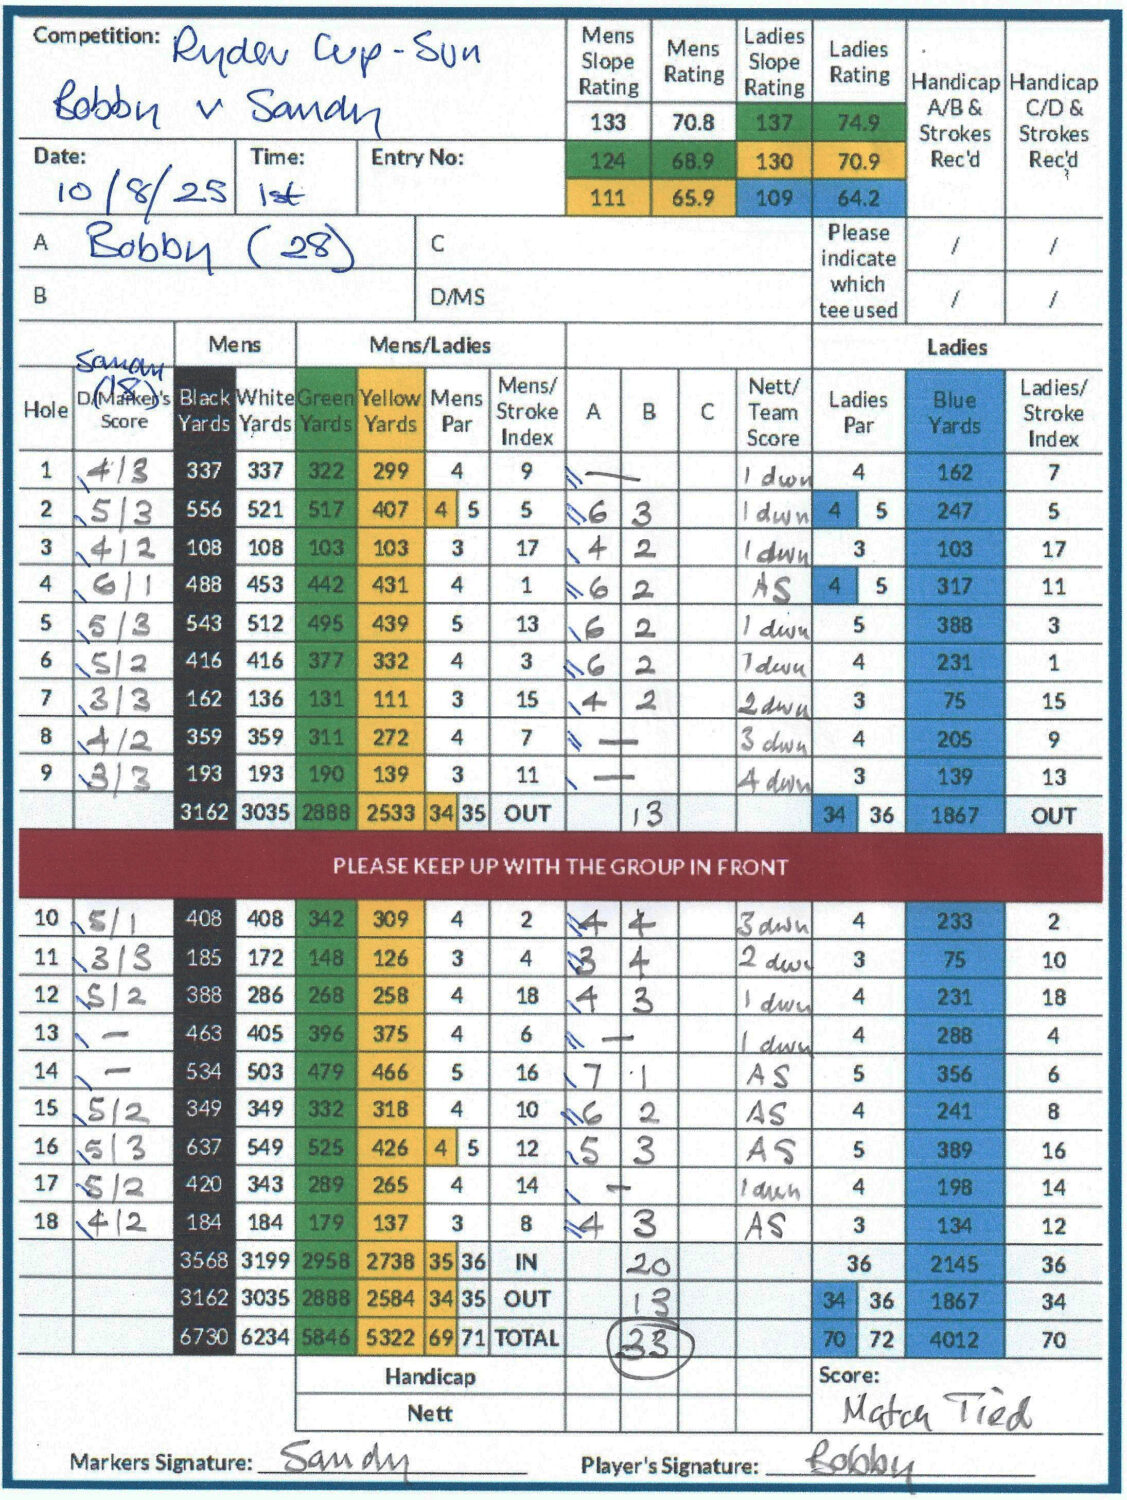 Competition: Ryder Cup - Sun
Bobby v Sandy
Mens Slope Rating Mens Rating Ladies Slope Rating Ladies Rating Handicap A/B & Strokes Rec'd Handicap C/D & Strokes Rec'd
133 70.8 137 74.9
124 68.9 130 70.9
111 65.9 109 64.2
Date: 10/8/25 Time: 1st Entry No:
A Bobby (28) C Please indicate which tee used / /
B D/MS / /
Mens Mens/Ladies Ladies
Sandy (18)
Hole D/Marker's Score Black Yards White Yards Green Yards Yellow Yards Mens Par Mens/ Stroke Index A B C Nett/ Team Score Ladies Par Blue Yards Ladies/ Stroke Index
1 4/3 337 337 322 299 4 9 \\ — 1 dwn 4 162 7
2 5/3 556 521 517 407 4 5 5 \\ 6 3 1 dwn 4 5 247 5
3 4/2 108 108 103 103 3 17 \ 4 2 1 dwn 3 103 17
4 6/1 488 453 442 431 4 1 \\ 6 2 AS 4 5 317 11
5 5/3 543 512 495 439 5 13 \ 6 2 1 dwn 5 388 3
6 5/2 416 416 377 332 4 3 \\ 6 2 1 dwn 4 231 1
7 3/3 162 136 131 111 3 15 \ 4 2 2 dwn 3 75 15
8 4/2 359 359 311 272 4 7 \\ — 3 dwn 4 205 9
9 3/3 193 193 190 139 3 11 \ — 4 dwn 3 139 13
3162 3035 2888 2533 34 35 OUT 13 34 36 1867 OUT
PLEASE KEEP UP WITH THE GROUP IN FRONT
10 5/1 408 408 342 309 4 2 \\ 4 4 3 dwn 4 233 2
11 3/3 185 172 148 126 3 4 \\ 3 4 2 dwn 3 75 10
12 5/2 388 286 268 258 4 18 \ 4 3 1 dwn 4 231 18
13 – 463 405 396 375 4 6 \\ — 1 dwn 4 288 4
14 – 534 503 479 466 5 16 \ 7 1 AS 5 356 6
15 5/2 349 349 332 318 4 10 \\ 6 2 AS 4 241 8
16 5/3 637 549 525 426 4 5 12 \ 5 3 AS 5 389 16
17 5/2 420 343 289 265 4 14 \ – 1 dwn 4 198 14
18 4/2 184 184 179 137 3 8 \\ 4 3 AS 3 134 12
3568 3199 2958 2738 35 36 IN 20 36 2145 36
3162 3035 2888 2584 34 35 OUT 13 34 36 1867 34
6730 6234 5846 5322 69 71 TOTAL 33 70 72 4012 70
Handicap Score:
Nett Match Tied
Markers Signature: Sandy Player's Signature: Bobby